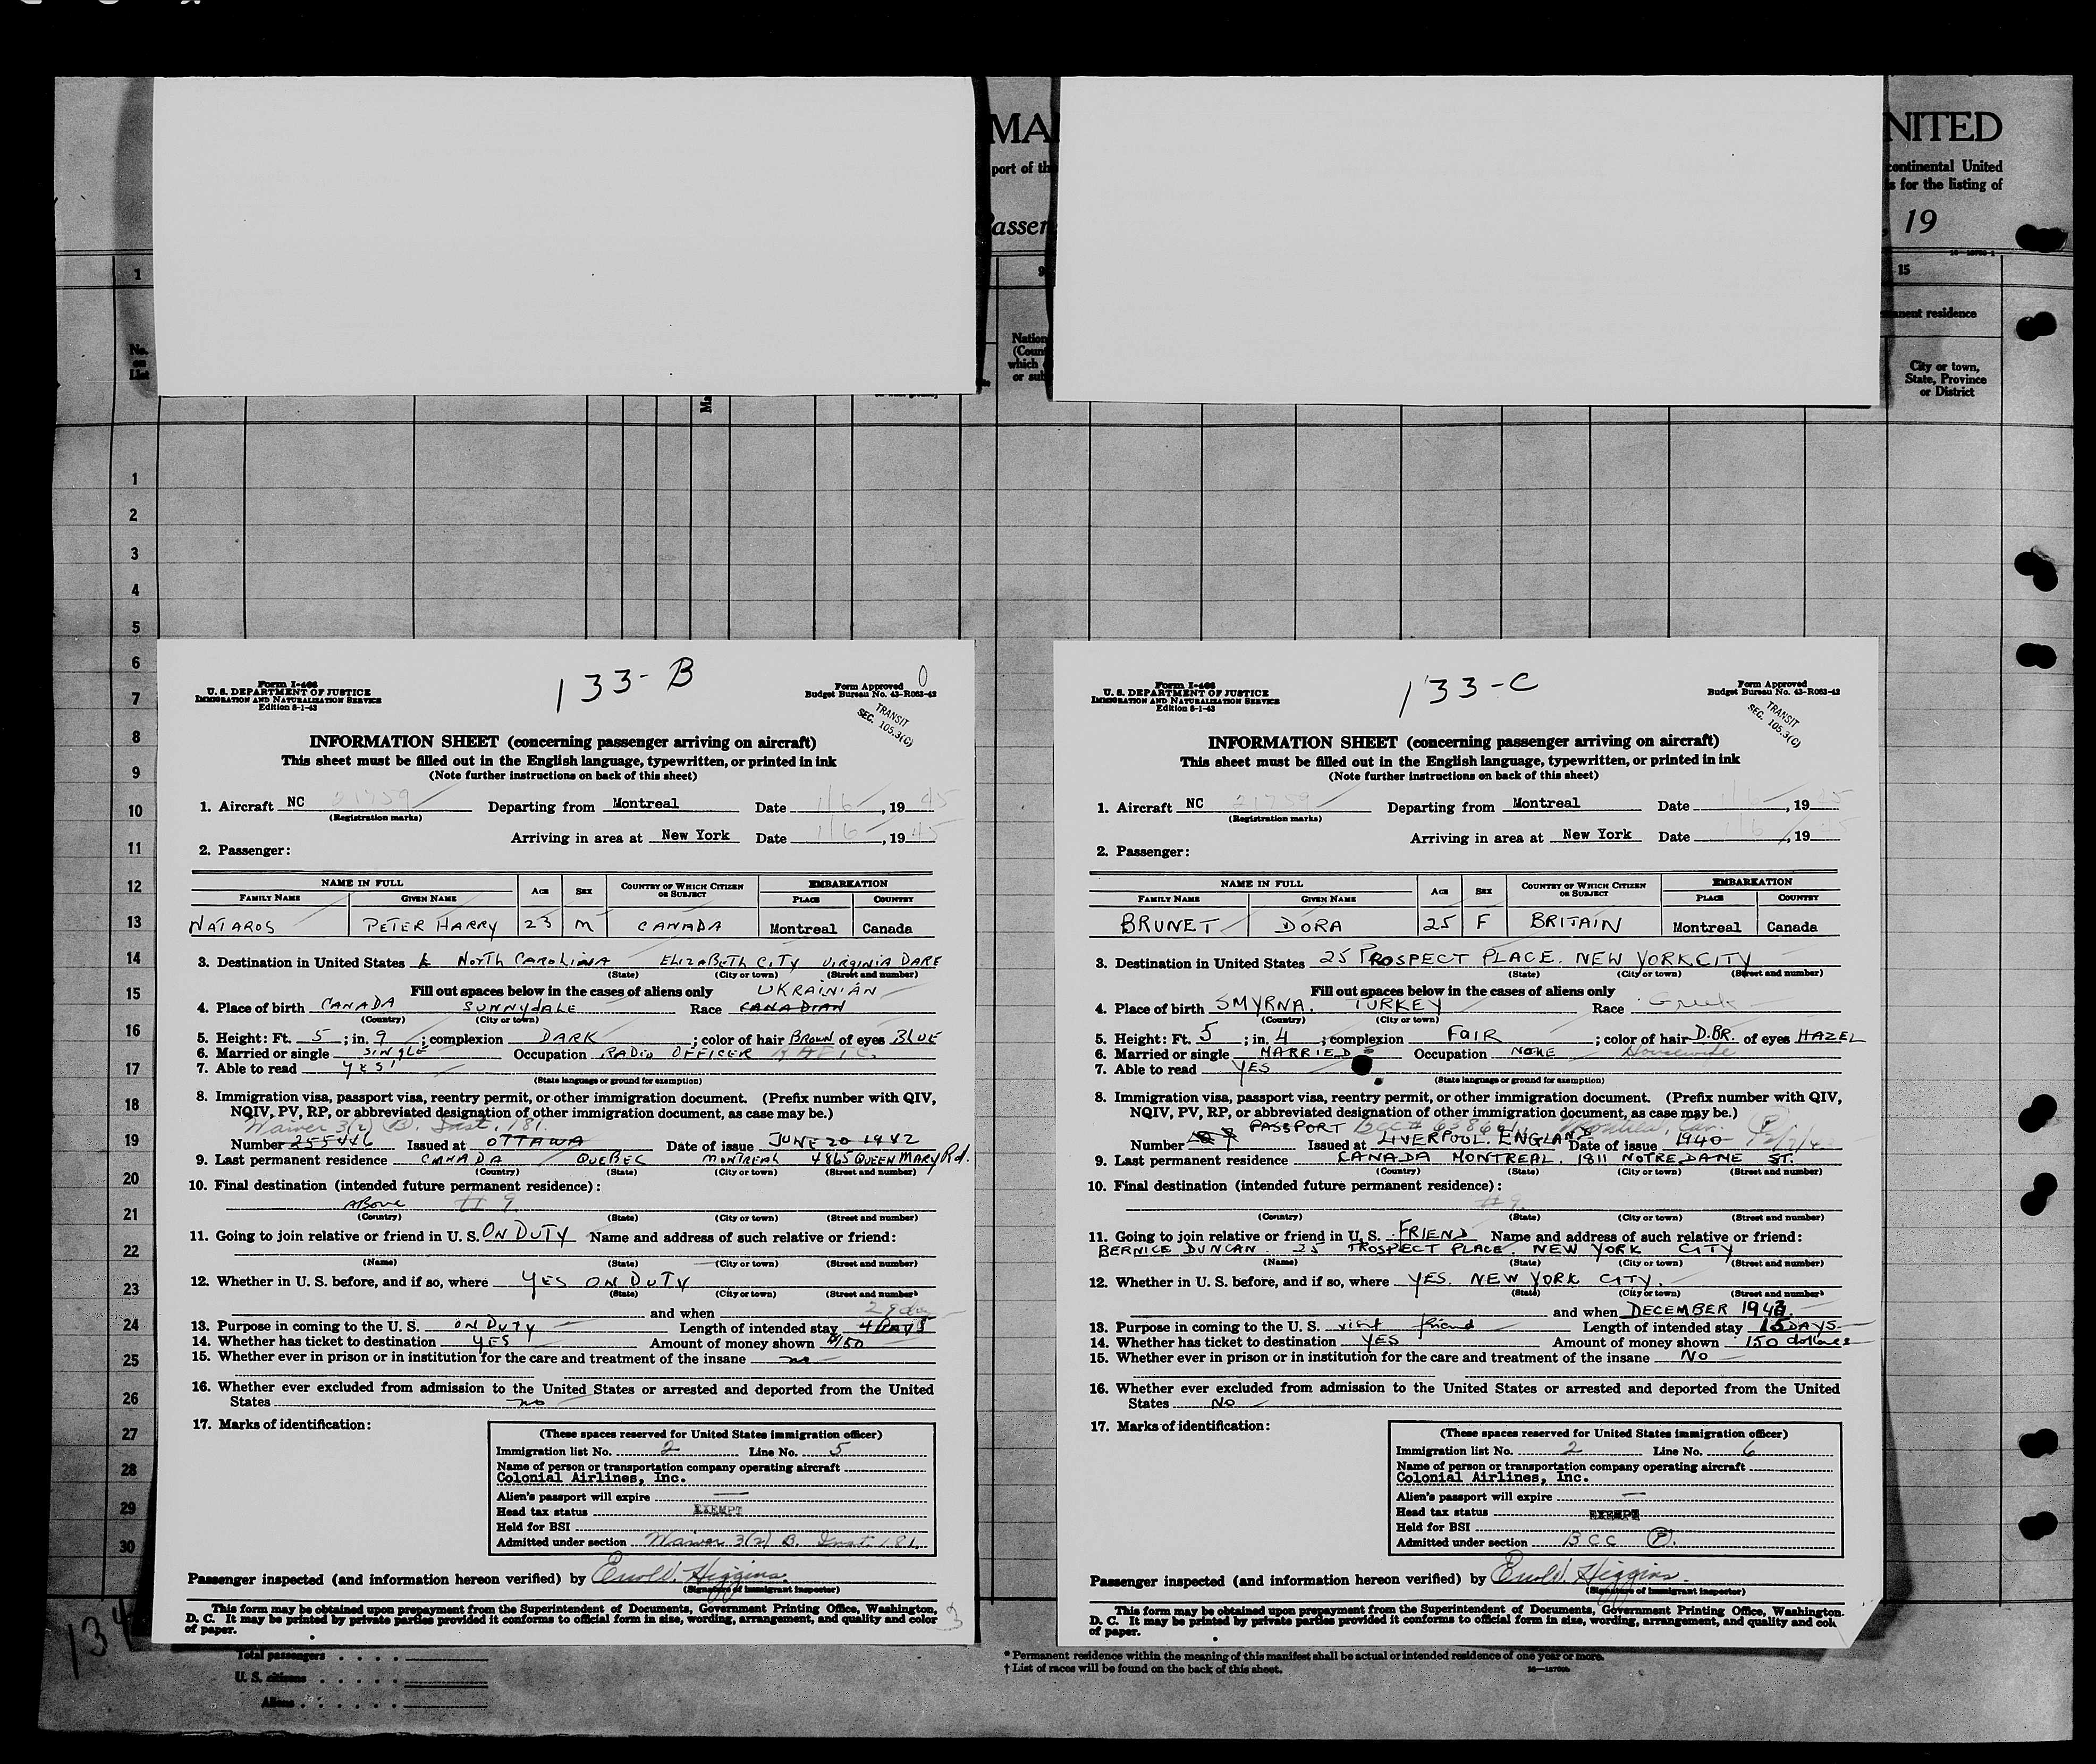 MA
NITED
port of th
continental United
s for the listing of
asser
19
1
9
15
nanent residence
No.
on
List
Nation
(Coun
which
or sub
City or town,
State, Province
or District
Ma
1
2
3
4
5
6
7
8
9
10
11
12
13
14
15
16
17
18
19
20
21
22
23
24
25
26
27
28
29
30
133-B
0
Form I-466
U. S. DEPARTMENT OF JUSTICE
IMMIGRATION AND NATURALIZATION SERVICE
Edition 8-1-43
Form Approved
Budget Bureau No. 43-R063-42
TRANSIT
SEC. 105.3(C)
INFORMATION SHEET (concerning passenger arriving on aircraft)
This sheet must be filled out in the English language, typewritten, or printed in ink
(Note further instructions on back of this sheet)
1. Aircraft NC 21759 Departing from Montreal Date 1/6, 1945
(Registration marks)
Arriving in area at New York Date 1/6, 1945
2. Passenger:
NAME IN FULL AGE SEX COUNTRY OF WHICH CITIZEN OR SUBJECT EMBARKATION
FAMILY NAME GIVEN NAME PLACE COUNTRY
NATAROS PETER HARRY 23 M CANADA Montreal Canada
3. Destination in United States NORTH CAROLINA ELIZABETH CITY VIRGINIA DARE
(State) (City or town) (Street and number)
Fill out spaces below in the cases of aliens only UKRAINIAN
4. Place of birth CANADA SUNNYDALE Race CANADIAN
(Country) (City or town)
5. Height: Ft. 5; in. 9; complexion DARK; color of hair BROWN of eyes BLUE
6. Married or single SINGLE Occupation RADIO OFFICER
7. Able to read YES
(State language or ground for exemption)
8. Immigration visa, passport visa, reentry permit, or other immigration document. (Prefix number with QIV,
NQIV, PV, RP, or abbreviated designation of other immigration document, as case may be.)
Waiver 3(2) B. Inst. 181.
Number 255446 Issued at OTTAWA Date of issue JUNE 20 1942
9. Last permanent residence CANADA QUEBEC MONTREAL 4865 QUEEN MARY Rd.
(Country) (State) (City or town) (Street and number)
10. Final destination (intended future permanent residence):
ABOVE # 9.
(Country) (State) (City or town) (Street and number)
11. Going to join relative or friend in U. S. ON DUTY Name and address of such relative or friend:
(Name) (State) (City or town) (Street and number)
12. Whether in U. S. before, and if so, where YES ON DUTY
(State) (City or town) (Street and number)
and when
13. Purpose in coming to the U. S. ON DUTY Length of intended stay 4 DAYS
14. Whether has ticket to destination YES Amount of money shown $150
15. Whether ever in prison or in institution for the care and treatment of the insane no
16. Whether ever excluded from admission to the United States or arrested and deported from the United
States no
17. Marks of identification:
(These spaces reserved for United States immigration officer)
Immigration list No. 2 Line No. 5
Name of person or transportation company operating aircraft
Colonial Airlines, Inc.
Alien's passport will expire —
Head tax status EXEMPT
Held for BSI
Admitted under section Waiver 3(2) B. Inst. 181.
Passenger inspected (and information hereon verified) by Enold. Higgins.
(Signature of immigrant inspector)
This form may be obtained upon prepayment from the Superintendent of Documents, Government Printing Office, Washington,
D. C. It may be printed by private parties provided it conforms to official form in size, wording, arrangement, and quality and color
of paper.
3
133-C
Form I-466
U. S. DEPARTMENT OF JUSTICE
IMMIGRATION AND NATURALIZATION SERVICE
Edition 8-1-43
Form Approved
Budget Bureau No. 43-R063-42
TRANSIT
SEC. 105.3(C)
INFORMATION SHEET (concerning passenger arriving on aircraft)
This sheet must be filled out in the English language, typewritten, or printed in ink
(Note further instructions on back of this sheet)
1. Aircraft NC 21759 Departing from Montreal Date 1/6, 1945
(Registration marks)
Arriving in area at New York Date 1/6, 1945
2. Passenger:
NAME IN FULL AGE SEX COUNTRY OF WHICH CITIZEN OR SUBJECT EMBARKATION
FAMILY NAME GIVEN NAME PLACE COUNTRY
BRUNET DORA 25 F BRITAIN Montreal Canada
3. Destination in United States 25 PROSPECT PLACE. NEW YORK CITY
(State) (City or town) (Street and number)
Fill out spaces below in the cases of aliens only
4. Place of birth SMYRNA. TURKEY Race Greek
(Country) (City or town)
5. Height: Ft. 5; in. 4; complexion FAIR; color of hair D.BR. of eyes HAZEL
6. Married or single MARRIED Occupation NONE Housewife
7. Able to read YES
(State language or ground for exemption)
8. Immigration visa, passport visa, reentry permit, or other immigration document. (Prefix number with QIV,
NQIV, PV, RP, or abbreviated designation of other immigration document, as case may be.)
PASSPORT BCC# Montreal, Can. P
Number Issued at LIVERPOOL. ENGLAND Date of issue 1940
9. Last permanent residence CANADA MONTREAL. 1811 NOTRE DAME ST.
(Country) (State) (City or town) (Street and number)
10. Final destination (intended future permanent residence):
#9.
(Country) (State) (City or town) (Street and number)
11. Going to join relative or friend in U. S. FRIEND Name and address of such relative or friend:
BERNICE DUNCAN. 25 PROSPECT PLACE. NEW YORK CITY
(Name) (State) (City or town) (Street and number)
12. Whether in U. S. before, and if so, where YES. NEW YORK CITY.
(State) (City or town) (Street and number)
and when DECEMBER 1943.
13. Purpose in coming to the U. S. visit friend Length of intended stay 15 DAYS
14. Whether has ticket to destination YES Amount of money shown 150 dollars
15. Whether ever in prison or in institution for the care and treatment of the insane NO
16. Whether ever excluded from admission to the United States or arrested and deported from the United
States NO
17. Marks of identification:
(These spaces reserved for United States immigration officer)
Immigration list No. 2 Line No. 6
Name of person or transportation company operating aircraft
Colonial Airlines, Inc.
Alien's passport will expire —
Head tax status EXEMPT
Held for BSI
Admitted under section BCC P.
Passenger inspected (and information hereon verified) by Enold. Higgins.
(Signature of immigrant inspector)
This form may be obtained upon prepayment from the Superintendent of Documents, Government Printing Office, Washington.
D. C. It may be printed by private parties provided it conforms to official form in size, wording, arrangement, and quality and colo
of paper.
134
Total passengers . . . .
U. S. citizens . . . . .
Aliens . . . . . .
* Permanent residence within the meaning of this manifest shall be actual or intended residence of one year or more.
† List of races will be found on the back of this sheet.